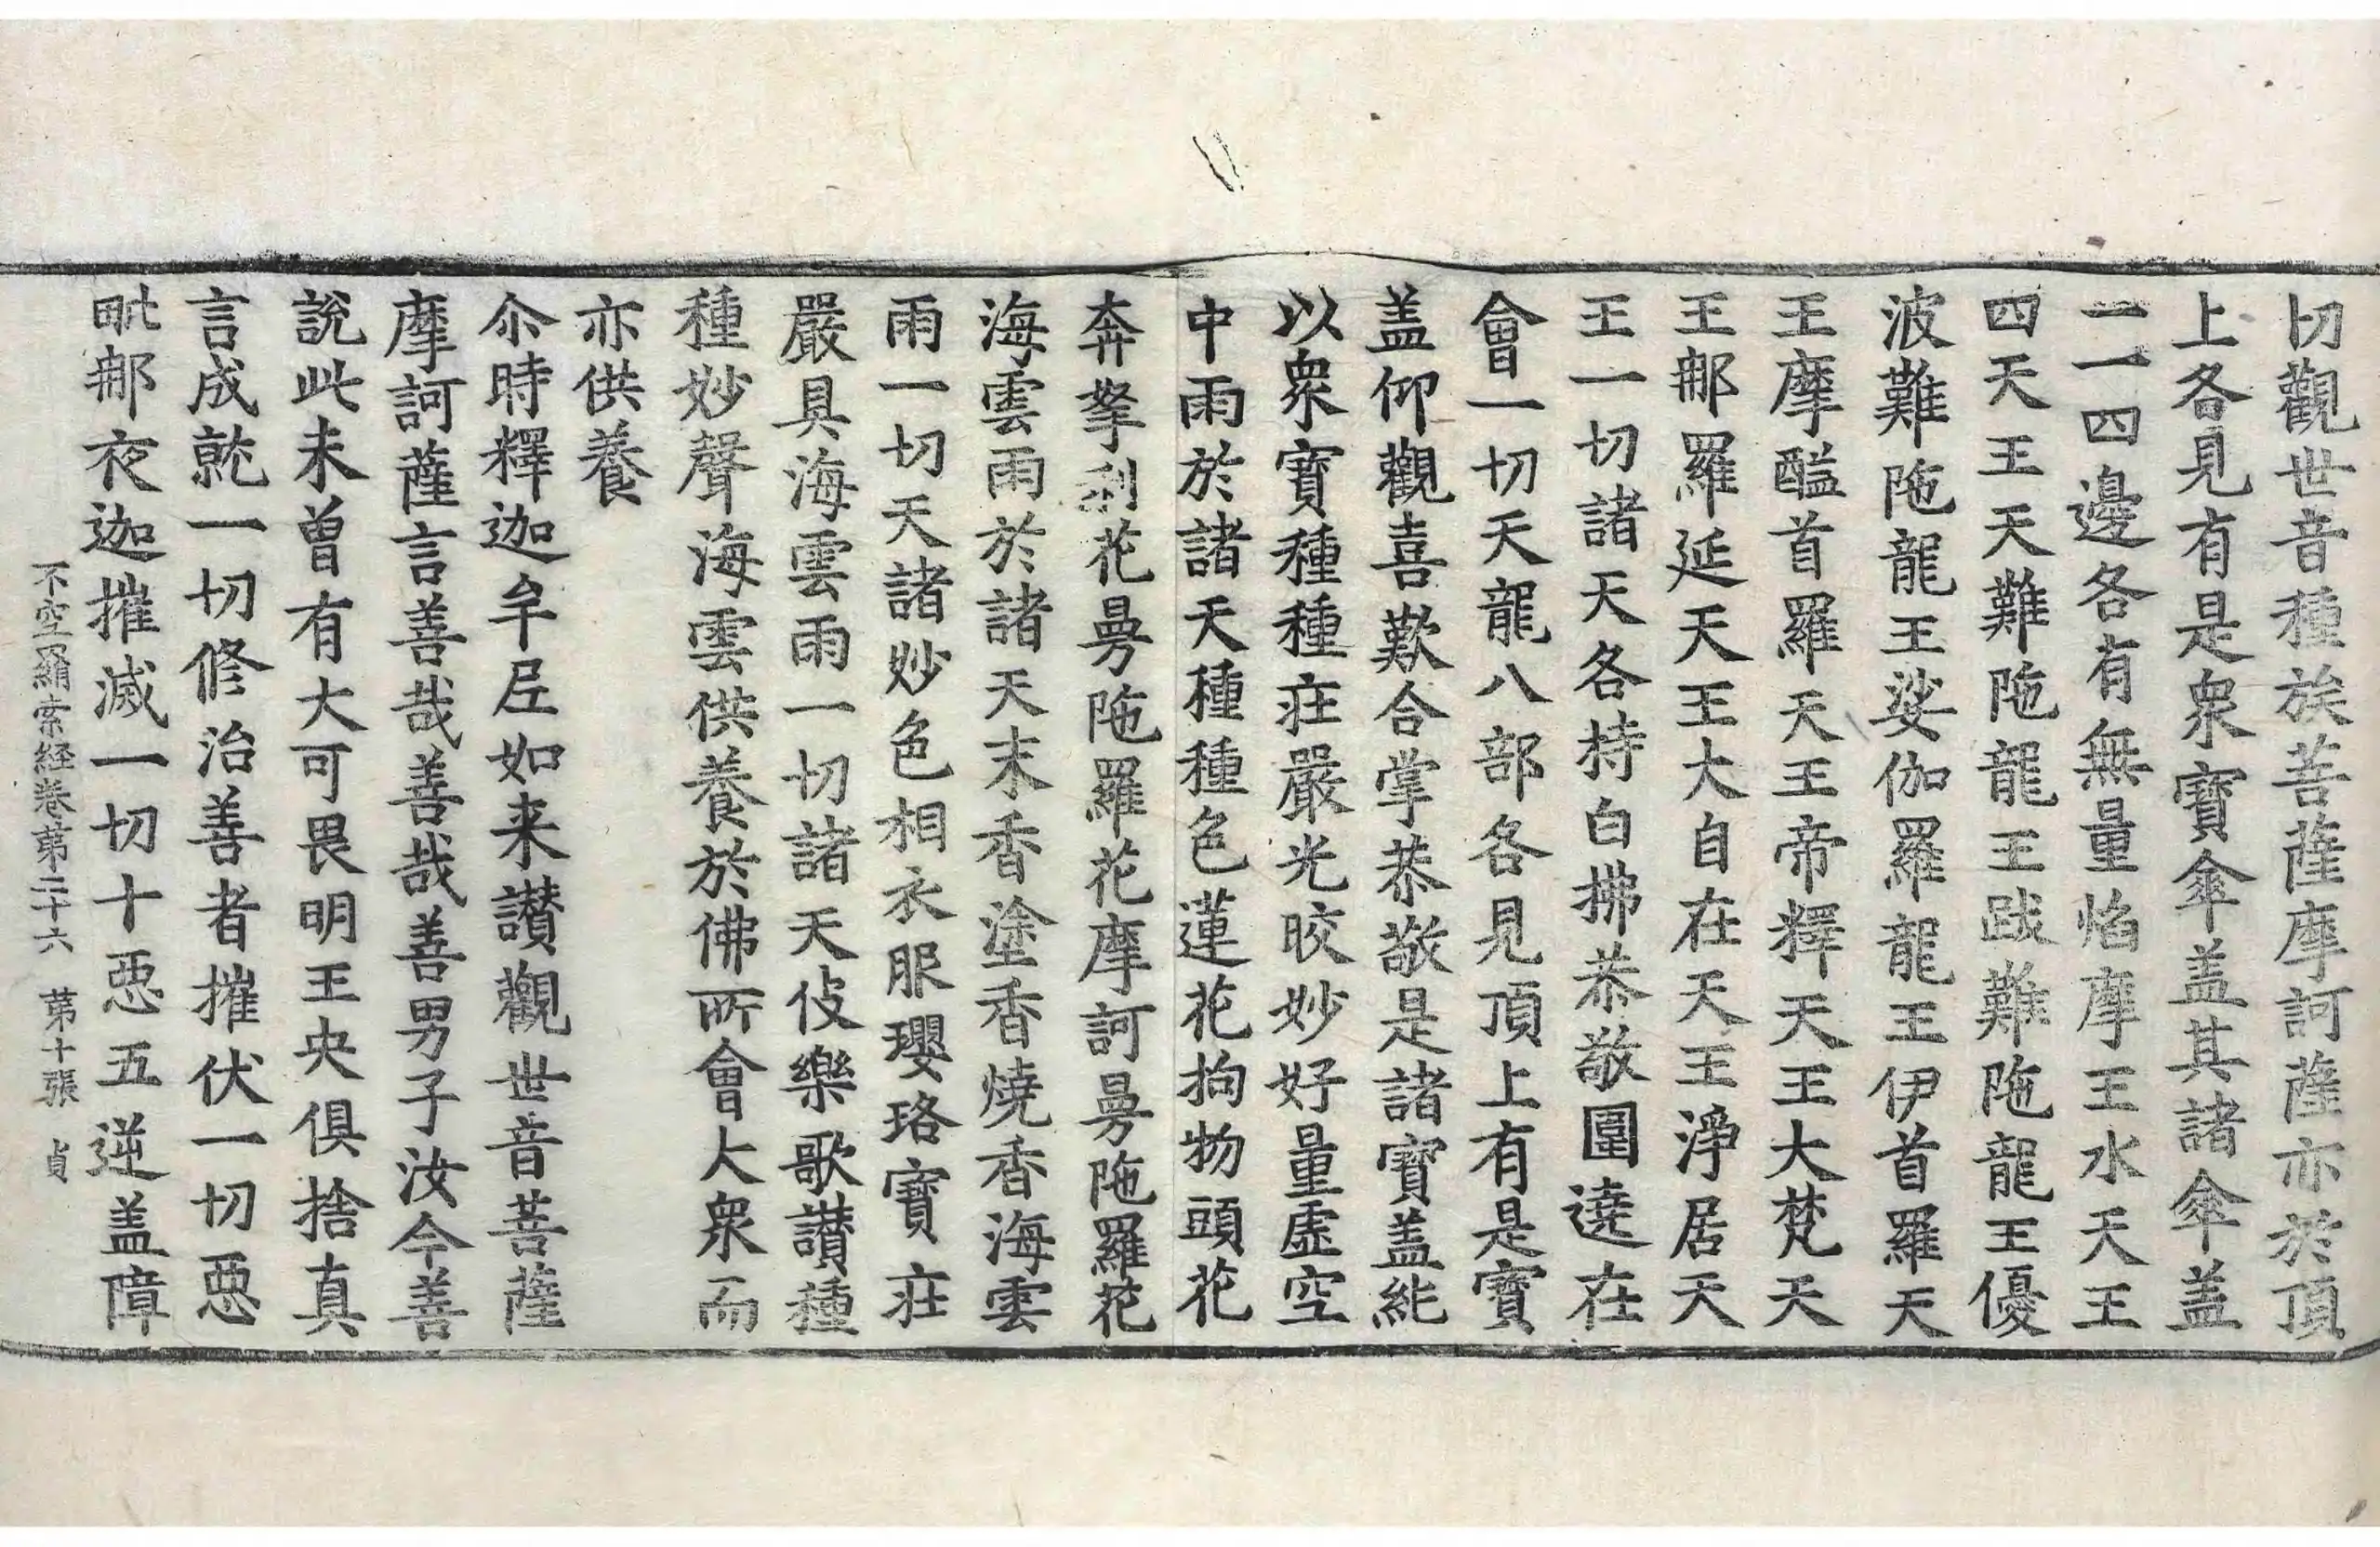 切觀世音種族菩薩摩訶薩亦於頂
上各見有是衆寶傘盖其諸傘盖
一一四邊各有無量焰摩王水天王
四天王天難陁龍王跋難陁龍王優
波難陁龍王娑伽羅龍王伊首羅天
王摩醯首羅天王帝釋天王大梵天
王那羅延天王大自在天王淨居天
王一切諸天各持白拂恭敬圍遶在
會一切天龍八部各見頂上有是寶
盖仰觀喜歎合掌恭敬是諸寶盖能
以衆寶種種莊嚴光皎妙好量虛空
中雨於諸天種種色蓮花拘物頭花
奔拏利花曼陁羅花摩訶曼陁羅花
海雲雨於諸天末香塗香燒香海雲
雨一切天諸妙色相衣服瓔珞寶莊
嚴具海雲雨一切諸天伎樂歌讃種
種妙聲海雲供養於佛所會大衆而
亦供養
尒時釋迦牟尼如来讃觀世音菩薩
摩訶薩言善哉善哉善男子汝今善
說此未曾有大可畏明王央俱捨真
言成就一切修治善者摧伏一切惡
毗那夜迦摧滅一切十惡五逆盖障
不空羂索経卷第二十六 第十張 貞